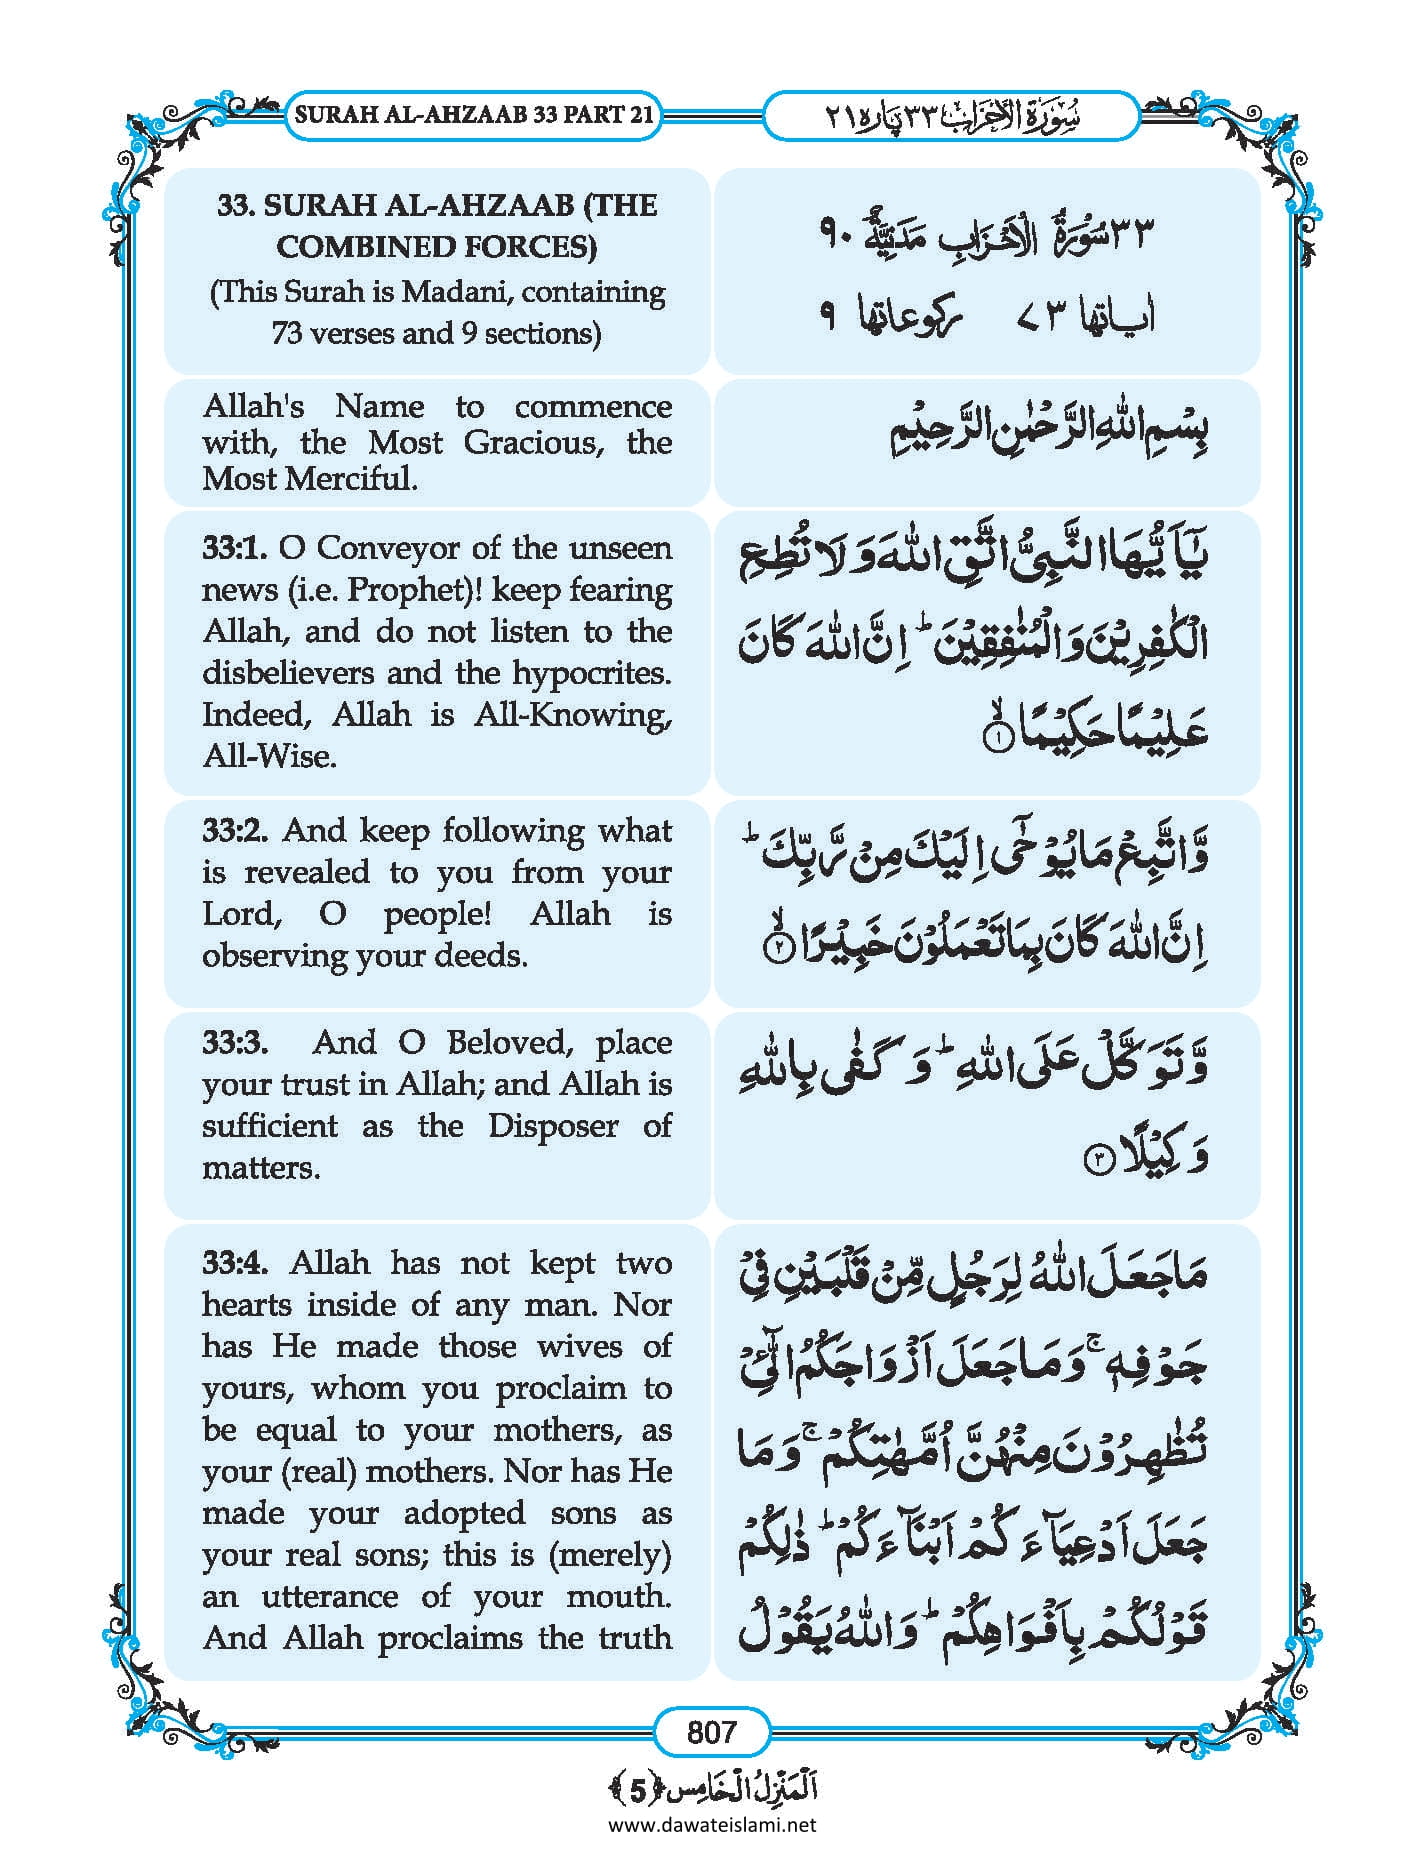 SURAH AL-AHZAAB 33 PART 21
سُوْرَةُ الْاَحْزَاب ٣٣ پاره ٢١
33. SURAH AL-AHZAAB (THE
COMBINED FORCES)
(This Surah is Madani, containing
73 verses and 9 sections)
٣٣ سُوْرَةُ الْاَحْزَابِ مَدَنِيَّةٌ ٩٠
اٰياتها ٧٣ ركوعاتها ٩
Allah's Name to commence
with, the Most Gracious, the
Most Merciful.
بِسْمِ اللّٰهِ الرَّحْمٰنِ الرَّحِيْمِ
33:1. O Conveyor of the unseen
news (i.e. Prophet)! keep fearing
Allah, and do not listen to the
disbelievers and the hypocrites.
Indeed, Allah is All-Knowing,
All-Wise.
يٰۤاَيُّهَا النَّبِىُّ اتَّقِ اللّٰهَ وَ لَا تُطِعِ
الْكٰفِرِيْنَ وَ الْمُنٰفِقِيْنَ ؕ اِنَّ اللّٰهَ كَانَ
عَلِيْمًا حَكِيْمًا ۙ﴿١﴾
33:2. And keep following what
is revealed to you from your
Lord, O people! Allah is
observing your deeds.
وَّ اتَّبِعْ مَا يُوْحٰۤى اِلَيْكَ مِنْ رَّبِّكَ ؕ
اِنَّ اللّٰهَ كَانَ بِمَا تَعْمَلُوْنَ خَبِيْرًا ۙ﴿٢﴾
33:3. And O Beloved, place
your trust in Allah; and Allah is
sufficient as the Disposer of
matters.
وَّ تَوَكَّلْ عَلَى اللّٰهِ ؕ وَ كَفٰى بِاللّٰهِ
وَكِيْلًا ﴿٣﴾
33:4. Allah has not kept two
hearts inside of any man. Nor
has He made those wives of
yours, whom you proclaim to
be equal to your mothers, as
your (real) mothers. Nor has He
made your adopted sons as
your real sons; this is (merely)
an utterance of your mouth.
And Allah proclaims the truth
مَا جَعَلَ اللّٰهُ لِرَجُلٍ مِّنْ قَلْبَيْنِ فِىْ
جَوْفِهٖ ۚ وَ مَا جَعَلَ اَزْوَاجَكُمُ الّٰٓـِٔىْ
تُظٰهِرُوْنَ مِنْهُنَّ اُمَّهٰتِكُمْ ۚ وَ مَا
جَعَلَ اَدْعِيَآءَكُمْ اَبْنَآءَكُمْ ؕ ذٰلِكُمْ
قَوْلُكُمْ بِاَفْوَاهِكُمْ ؕ وَ اللّٰهُ يَقُوْلُ
807
اَلْمَنْزِلُ الْخَامِس ﴿5﴾
www.dawateislami.net